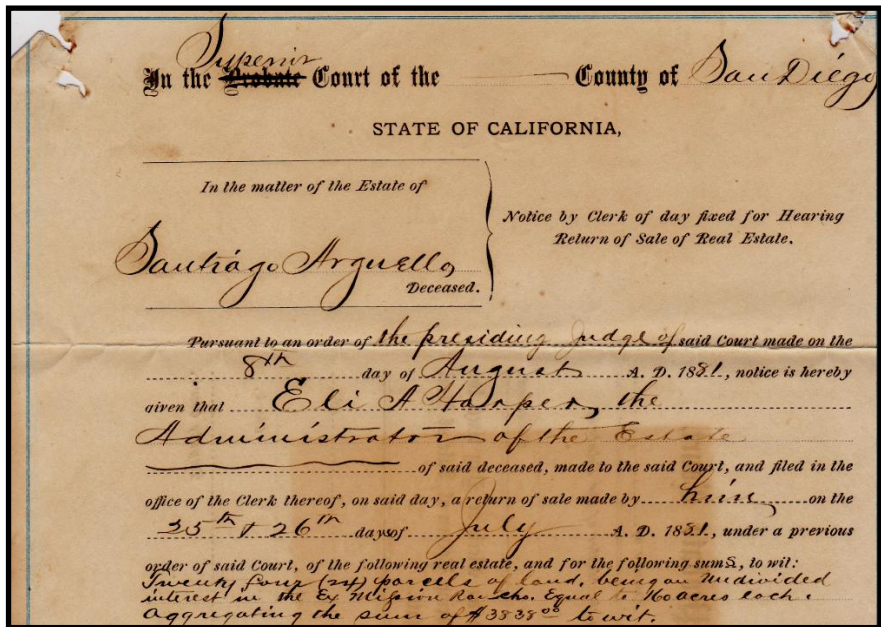 Superior
In the Probate Court of the County of San Diego
STATE OF CALIFORNIA,
In the matter of the Estate of
Santiago Arguello,
Deceased.
Notice by Clerk of day fixed for Hearing
Return of Sale of Real Estate.
Pursuant to an order of the presiding Judge of said Court made on the
8th day of August A. D. 1881, notice is hereby
given that Eli A Harper, the
Administrator of the Estate
of said deceased, made to the said Court, and filed in the
office of the Clerk thereof, on said day, a return of sale made by him on the
25th & 26th days of July A. D. 1881, under a previous
order of said Court, of the following real estate, and for the following sums, to wit:
Twenty four (24) parcels of land, being an undivided
interest in the Ex Mission Rancho. Equal to 160 acres each.
Aggregating the sum of $3838 00 to wit.